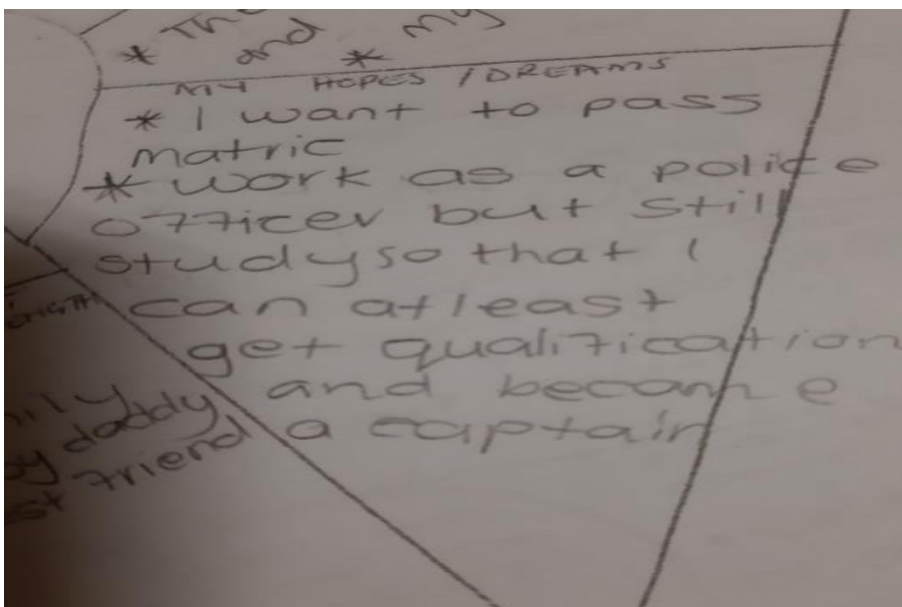 * Th
and * my
MY HOPES / DREAMS
* I want to pass
matric
* work as a police
officer but still
study so that I
can atleast
get qualification
and become
a captain
daddy
friend